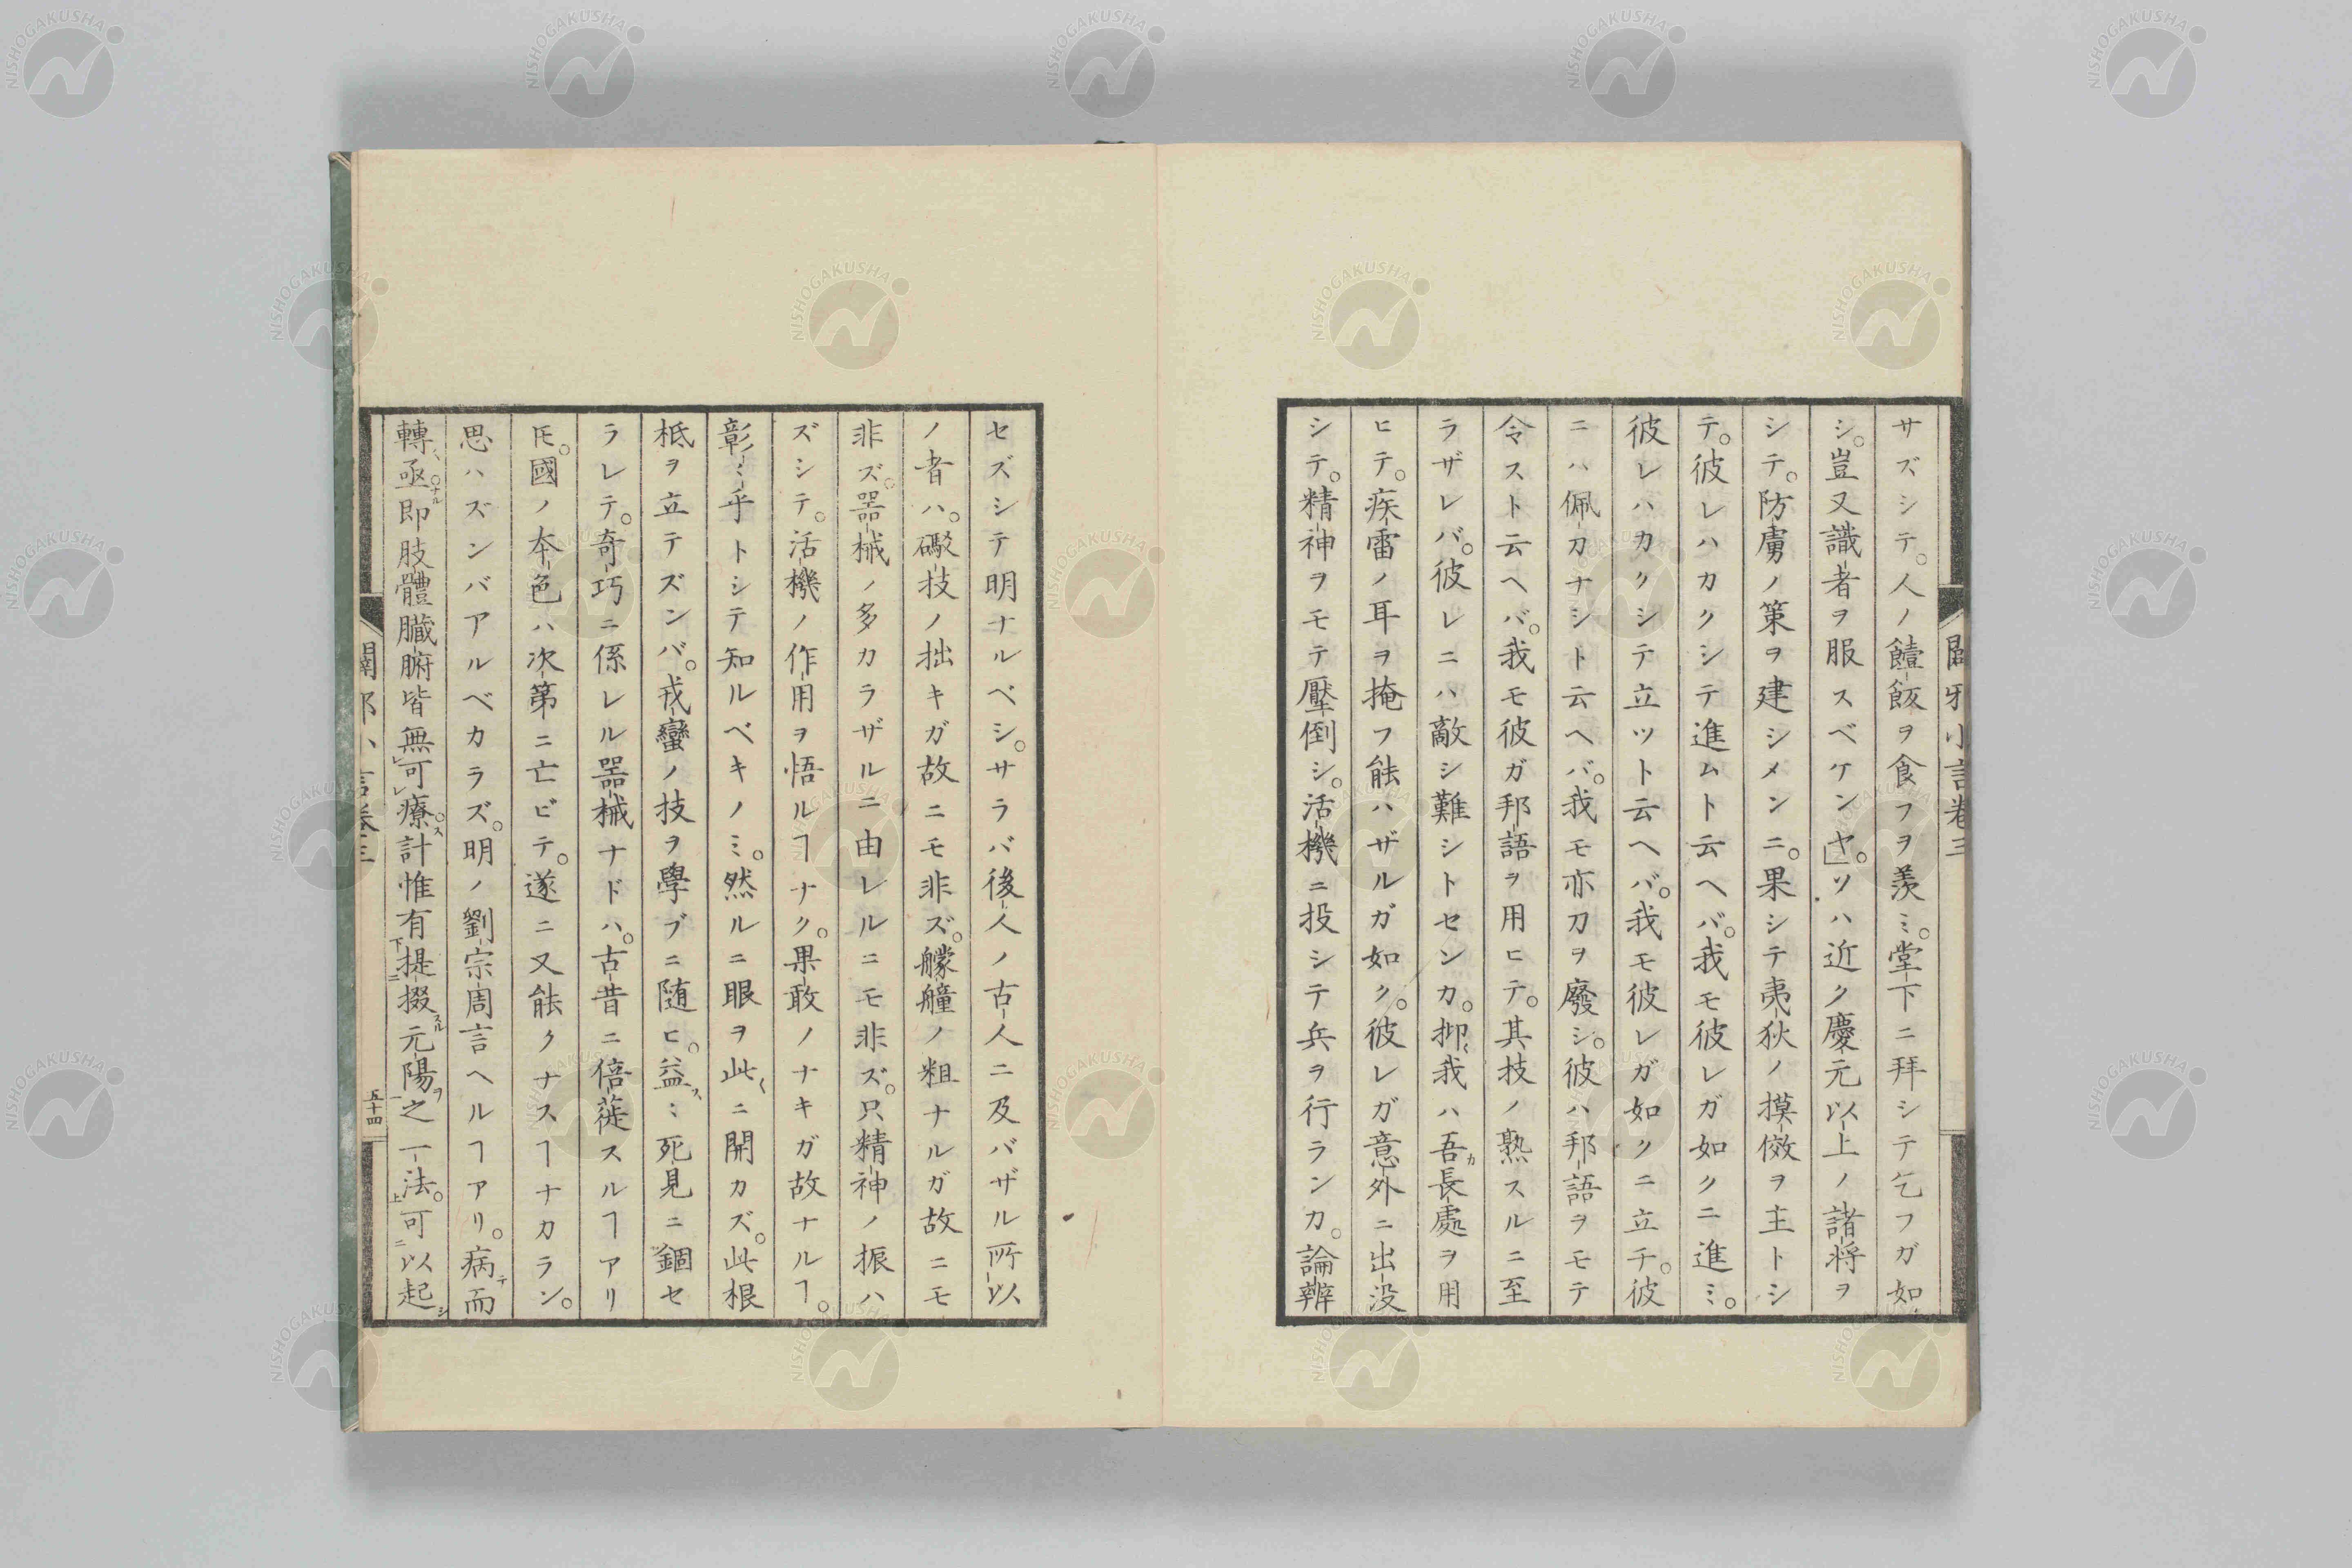 闢邪小言卷三
サズシテ。人ノ饐飯ヲ食フヲ羨ミ。堂下ニ拜シテ乞フガ如
シ。豈又識者ヲ服スベケンヤ。」ソハ近ク慶元以上ノ諸将ヲ
シテ。防虜ノ策ヲ建シメンニ。果シテ夷狄ノ摸傚ヲ主トシ
テ。彼レハカクシテ進ムト云ヘバ。我モ彼レガ如クニ進ミ。
彼レハカクシテ立ツト云ヘバ。我モ彼レガ如クニ立チ。彼
ニハ佩刀ナシト云ヘバ。我モ亦刀ヲ廢シ。彼ハ邦語ヲモテ
令スト云ヘバ。我モ彼ガ邦語ヲ用ヒテ。其技ノ熟スルニ至
ラザレバ。彼レニハ敵シ難シトセンカ。抑我ハ吾長處ヲ用
ヒテ。疾雷ノ耳ヲ掩フ能ハザルガ如ク。彼レガ意外ニ出没
シテ。精神ヲモテ壓倒シ。活機ニ投シテ兵ヲ行ランカ。論辨
セズシテ明ナルベシ。サラバ後人ノ古人ニ及バザル所以
ノ者ハ。礮技ノ拙キガ故ニモ非ズ。艨艟ノ粗ナルガ故ニモ
非ズ。器械ノ多カラザルニ由レルニモ非ズ。只精神ノ振ハ
ズシテ。活機ノ作用ヲ悟ルヿナク。果敢ノナキガ故ナルヿ。
彰ミ乎トシテ知ルベキノミ。然ルニ眼ヲ此ニ開カズ。此根
柢ヲ立テズンバ。戎蠻ノ技ヲ學ブニ随ヒ。益ミ死見ニ錮セ
ラレテ。奇巧ニ係レル器械ナドハ。古昔ニ倍蓰スルヿアリ
𪜈。國ノ夲色ハ次第ニ亡ビテ。遂ニ又能クナスヿナカラン。
思ハズンバアルベカラズ。明ノ劉宗周言ヘルヿアリ。病而
轉亟即肢體臓腑皆無可療計惟有提掇元陽之一法。可以起
闢邪小言卷三
五十四
NISHOGAKUSHA